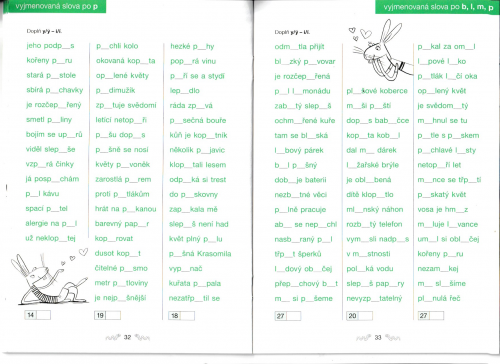 vyjmenovaná slova po p
Doplň y/ý – i/í.
jeho podp__s
kořeny p__ru
stará p__stole
sbírá p__chavky
je rozčep__řený
smetl p__liny
bojím se up__rů
viděl slep__še
vzp__rá činky
já posp__chám
p__l kávu
spací p__tel
alergie na p__l
už neklop__tej
14
p__chlí kolo
okovaná kop__ta
op__lené květy
p__dimužík
zp__tuje svědomí
letící netop__ři
p__šu dop__s
p__šně se nosí
květy p__voněk
zarostlá p__rem
proti p__tlákům
hrát na p__kanou
barevný pap__r
kop__rovat
dusot kop__t
čitelné p__smo
metr p__tloviny
je nejp__šnější
19
hezké p__hy
pop__rá vinu
p__ří se a stydí
lep__dlo
ráda zp__vá
p__sečná bouře
kůň je kop__tník
několik p__javic
klop__tali lesem
odp__ká si trest
do p__skovny
zap__kala mě
slep__š není had
květ plný p__lu
p__šná Krasomila
vyp__nač
kuřata p__pala
nezatřp__til se
18
32
vyjmenovaná slova po b, l, m, p
Doplň y/ý – i/í.
odm__tla přijít
bl__zký p__vovar
je rozčep__řená
p__l l__monádu
zab__tý slep__š
ochm__řené kuře
tam se bl__ská
l__bový párek
b__l p__šný
dob__je baterii
nezb__tné věci
p__lně pracuje
ab__ se nep__chl
nasb__raný p__l
třp__t šperků
l__dový ob__čej
přep__chový b__t
m__ si p__šeme
27
pl__šové koberce
m__ší p__ští
dop__s bab__čce
kop__ta kob__l
dal m__ dárek
l__žařské brýle
je oblí__bená
dítě klop__tlo
ml__nský náhon
rozb__tý telefon
vym__sli nadp__s
v m__stnosti
pol__ká vodu
slep__š pap__ry
nevyzp__tatelný
20
p__kal za om__l
l__pové l__ko
p__tlák l__čí oka
op__lený květ
je svědom__tý
m__hnul se tu
p__tle s p__skem
p__chlavé l__sty
netop__ří let
m__nce se třp__tí
p__skatý květ
vosa je hm__z
m__luje l__vance
um__l si obl__čej
kořeny p__ru
nezam__kej
m__ sl__šíme
pl__nulá řeč
27
33